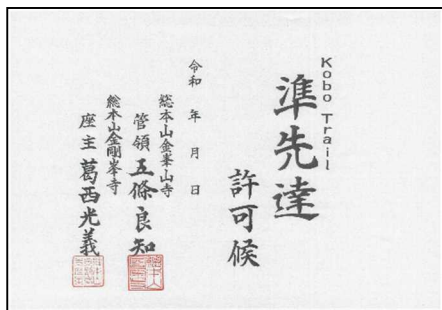 Kobo Trail
準先達
許可候
令和 年 月 日
総本山金峯山寺
管領 五條良知
総本山金剛峯寺
座主 葛西光義